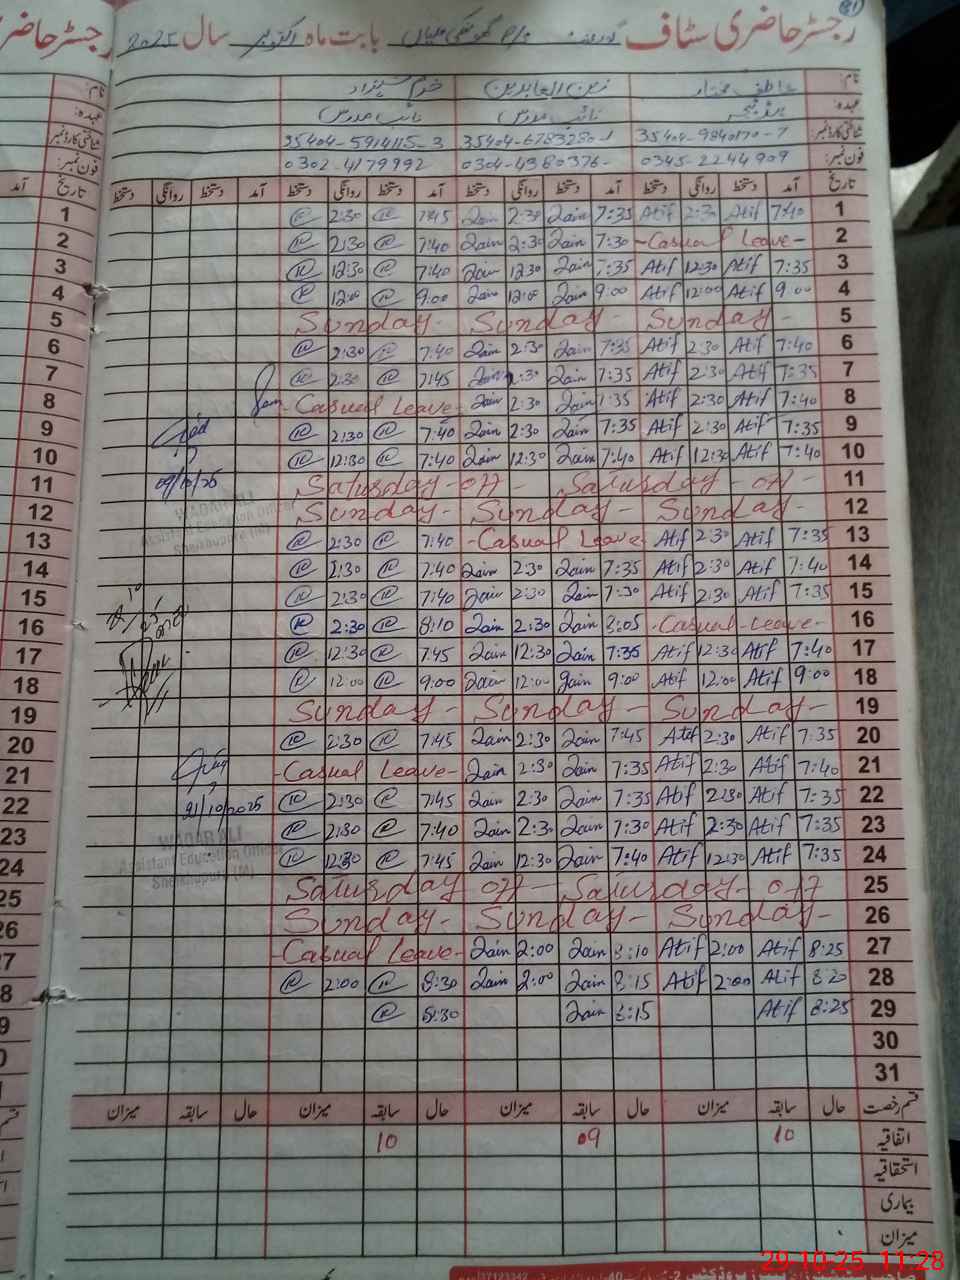 81
رجسٹر حاضری سٹاف گورنمنٹ P/S بابت ماہ اکتوبر سال 2025
نام: عاطف مختار زین العابدین خرم شہزاد
عہدہ: ہیڈ ٹیچر نائب مدرس نائب مدرس
شناختی کارڈ نمبر 35404-9840170-7 35404-6783280-1 35404-5914115-3
فون نمبر: 0345-2244909 0304-4380376- 0302-4179992
تاریخ آمد دستخط روانگی دستخط آمد دستخط روانگی دستخط آمد دستخط روانگی دستخط آمد دستخط روانگی دستخط
1 7:40 Atif 2:30 Atif 7:35 Zain 2:30 Zain 7:45 2:30
2 -Casual Leave- 7:30 Zain 2:30 Zain 7:40 2:30
3 7:35 Atif 12:30 Atif 7:35 Zain 12:30 Zain 7:40 12:30
4 9:00 Atif 12:00 Atif 9:00 Zain 12:00 Zain 9:00 12:00
5 Sunday- Sunday- Sunday-
6 7:40 Atif 2:30 Atif 7:35 Zain 2:30 Zain 7:40 2:30
7 7:35 Atif 2:30 Atif 7:35 Zain 2:30 Zain 7:45 2:30
8 7:40 Atif 2:30 Atif 7:35 Zain 2:30 Zain -Casual Leave-
9 7:35 Atif 2:30 Atif 7:35 Zain 2:30 Zain 7:40 2:30
10 7:40 Atif 12:30 Atif 7:40 Zain 12:30 Zain 7:40 12:30
11 Saturday-off- Saturday-off-
09/10/25
12 Sunday- Sunday- Sunday-
WADAR ALI
Assistant Education Officer
Sheikhupura (M)
13 7:35 Atif 2:30 Atif -Casual Leave 7:40 2:30
14 7:40 Atif 2:30 Atif 7:35 Zain 2:30 Zain 7:40 2:30
15 7:35 Atif 2:30 Atif 7:30 Zain 2:30 Zain 7:40 2:30
16 -Casual-Leave- 8:05 Zain 2:30 Zain 8:10 2:30
17 7:40 Atif 12:30 Atif 7:35 Zain 12:30 Zain 7:45 12:30
18 9:00 Atif 12:00 Atif 9:00 Zain 12:00 Zain 9:00 12:00
19 Sunday- Sunday- Sunday-
20 7:35 Atif 2:30 Atif 7:45 Zain 2:30 Zain 7:45 2:30
21 7:40 Atif 2:30 Atif 7:35 Zain 2:30 Zain -Casual Leave-
22 7:35 Atif 2:30 Atif 7:35 Zain 2:30 Zain 7:45 2:30
21/10/2025
23 7:35 Atif 2:30 Atif 7:30 Zain 2:30 Zain 7:40 2:30
WADAR ALI
Assistant Education Officer
Sheikhupura (M)
24 7:35 Atif 12:30 Atif 7:40 Zain 12:30 Zain 7:45 12:30
25 Saturday off- Saturday-off
26 Sunday- Sunday- Sunday-
27 8:25 Atif 2:00 Atif 8:10 Zain 2:00 Zain -Casual Leave-
28 8:20 Atif 2:00 Atif 8:15 Zain 2:00 Zain 8:30 2:00
29 8:25 Atif 8:15 Zain 8:30
30
31
قسم رخصت حال سابقہ میزان حال سابقہ میزان حال سابقہ میزان حال سابقہ میزان
اتفاقیہ 10 09 10
استحقاقیہ
بیماری
میزان
29-10-25 11:28